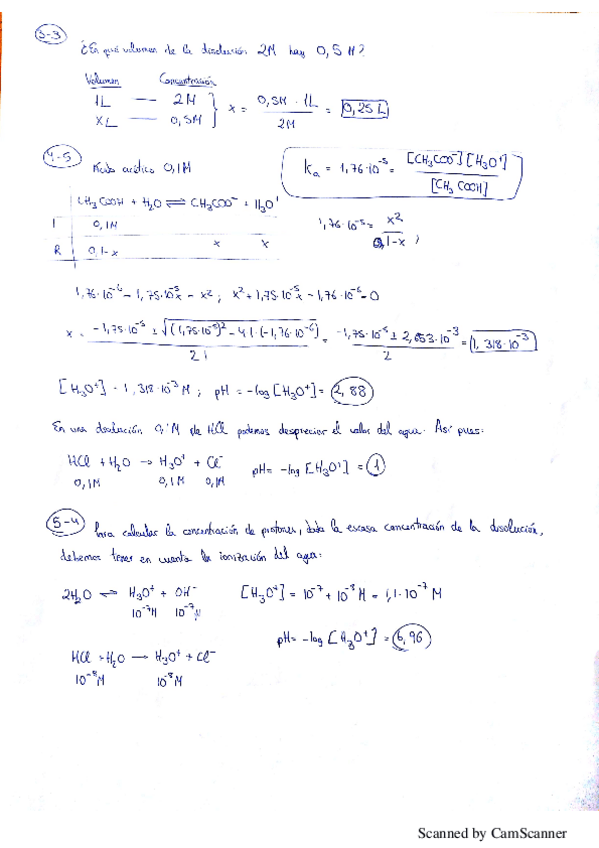 3-3
¿En qué volumen de la disolución 2M hay 0,5 M?
Volumen Concentración
1L — 2M
XL — 0,5M
x = 0,5M · 1L / 2M = 0,25 L
4-5
Ácido acético 0,1M
Ka = 1,76·10⁻⁵ = [CH₃COO⁻][H₃O⁺] / [CH₃COOH]
CH₃COOH + H₂O ⇌ CH₃COO⁻ + H₃O⁺
I 0,1M
R 0,1-x x x
1,76·10⁻⁵ = x² / 0,1-x ;
1,76·10⁻⁶ - 1,75·10⁻⁵x - x² ; x² + 1,75·10⁻⁵x - 1,76·10⁻⁶ = 0
x = -1,75·10⁻⁵ ± √(1,75·10⁻⁵)² - 4·1·(-1,76·10⁻⁶) / 2·1 = -1,75·10⁻⁵ ± 2,653·10⁻³ / 2 = 1,318·10⁻³
[H₃O⁺] - 1,318·10⁻³ M ; pH = -log [H₃O⁺] = 2,88
En una disolución 0,1M de HCl podemos despreciar el valor del agua. Así pues:
HCl + H₂O → H₃O⁺ + Cl⁻ pH = -log [H₃O⁺] = 1
0,1M 0,1M 0,1M
5-4
Para calcular la concentración de protones, dada la escasa concentración de la disolución,
debemos tener en cuenta la ionización del agua:
2H₂O ⇌ H₃O⁺ + OH⁻ [H₃O⁺] = 10⁻⁷ + 10⁻⁸ M = 1,1·10⁻⁷ M
10⁻⁷M 10⁻⁷M
pH = -log [H₃O⁺] = 6,96
HCl + H₂O → H₃O⁺ + Cl⁻
10⁻⁸M 10⁻⁸M
Scanned by CamScanner